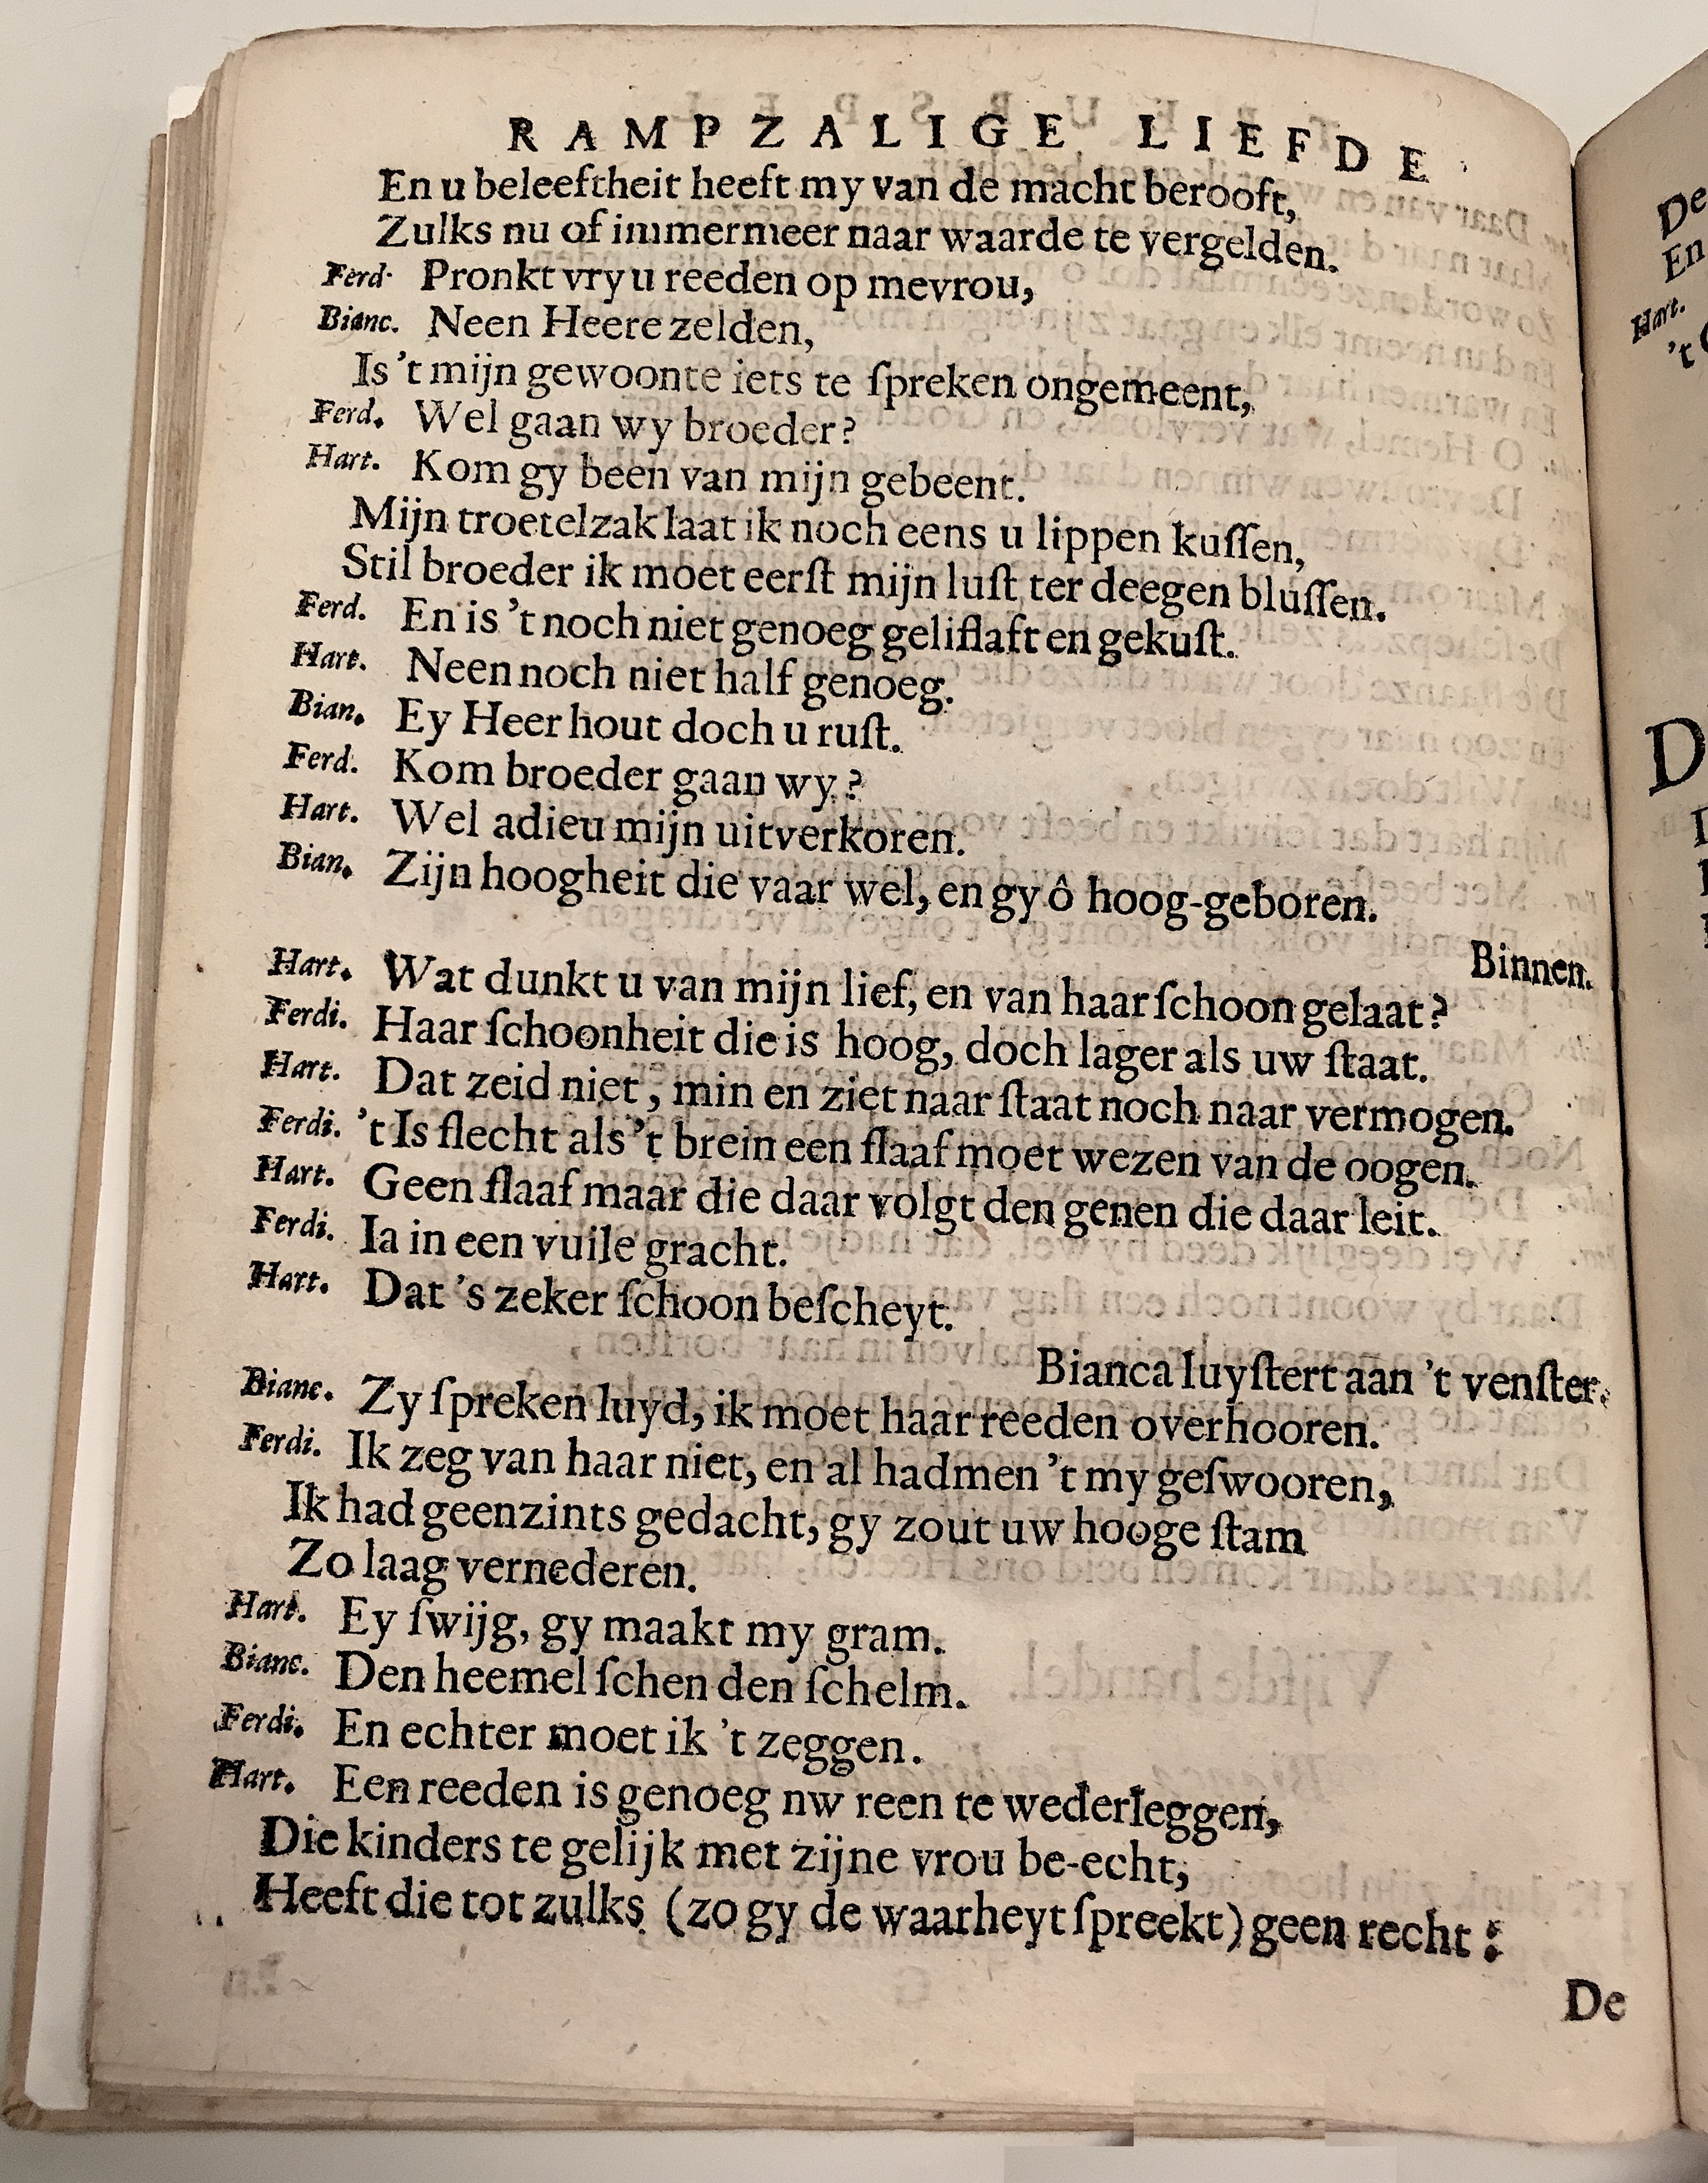 RAMPZALIGE LIEFDE
En u beleeftheit heeft my van de macht berooft,
Zulks nu of immermeer naar waarde te vergelden.
Ferd. Pronkt vry u reeden op mevrou,
Bianc. Neen Heere zelden,
Is 't mijn gewoonte iets te ſpreken ongemeent,
Ferd. Wel gaan wy broeder?
Hart. Kom gy been van mijn gebeent.
Mijn troetelzak laat ik noch eens u lippen kuſſen,
Stil broeder ik moet eerſt mijn luſt ter deegen bluſſen.
Ferd. En is 't noch niet genoeg gelifłaft en gekuſt.
Hart. Neen noch niet half genoeg.
Bian. Ey Heer hout doch u ruſt.
Ferd. Kom broeder gaan wy?
Hart. Wel adieu mijn uitverkoren.
Bian. Zijn hoogheit die vaar wel, en gy ô hoog-geboren.
Binnen.
Hart. Wat dunkt u van mijn lief, en van haar ſchoon gelaat?
Ferdi. Haar ſchoonheit die is hoog, doch lager als uw ſtaat.
Hart. Dat zeid niet, min en ziet naar ſtaat noch naar vermogen.
Ferdi. 't Is ſlecht als 't brein een ſlaaf moet wezen van de oogen.
Hart. Geen ſlaaf maar die daar volgt den genen die daar leit.
Ferdi. Ia in een vuile gracht.
Hart. Dat 's zeker ſchoon beſcheyt.
Bianca luyſtert aan 't venſter.
Bianc. Zy ſpreken luyd, ik moet haar reeden overhooren.
Ferdi. Ik zeg van haar niet, en al hadmen 't my geſwooren,
Ik had geenzints gedacht, gy zout uw hooge ſtam
Zo laag vernederen.
Hart. Ey ſwijg, gy maakt my gram.
Bianc. Den heemel ſchen den ſchelm.
Ferdi. En echter moet ik 't zeggen.
Hart. Een reeden is genoeg nw reen te wederleggen,
Die kinders te gelijk met zijne vrou be-echt,
Heeft die tot zulks (zo gy de waarheyt ſpreekt) geen recht:
De
De
En
Hart.
't
D